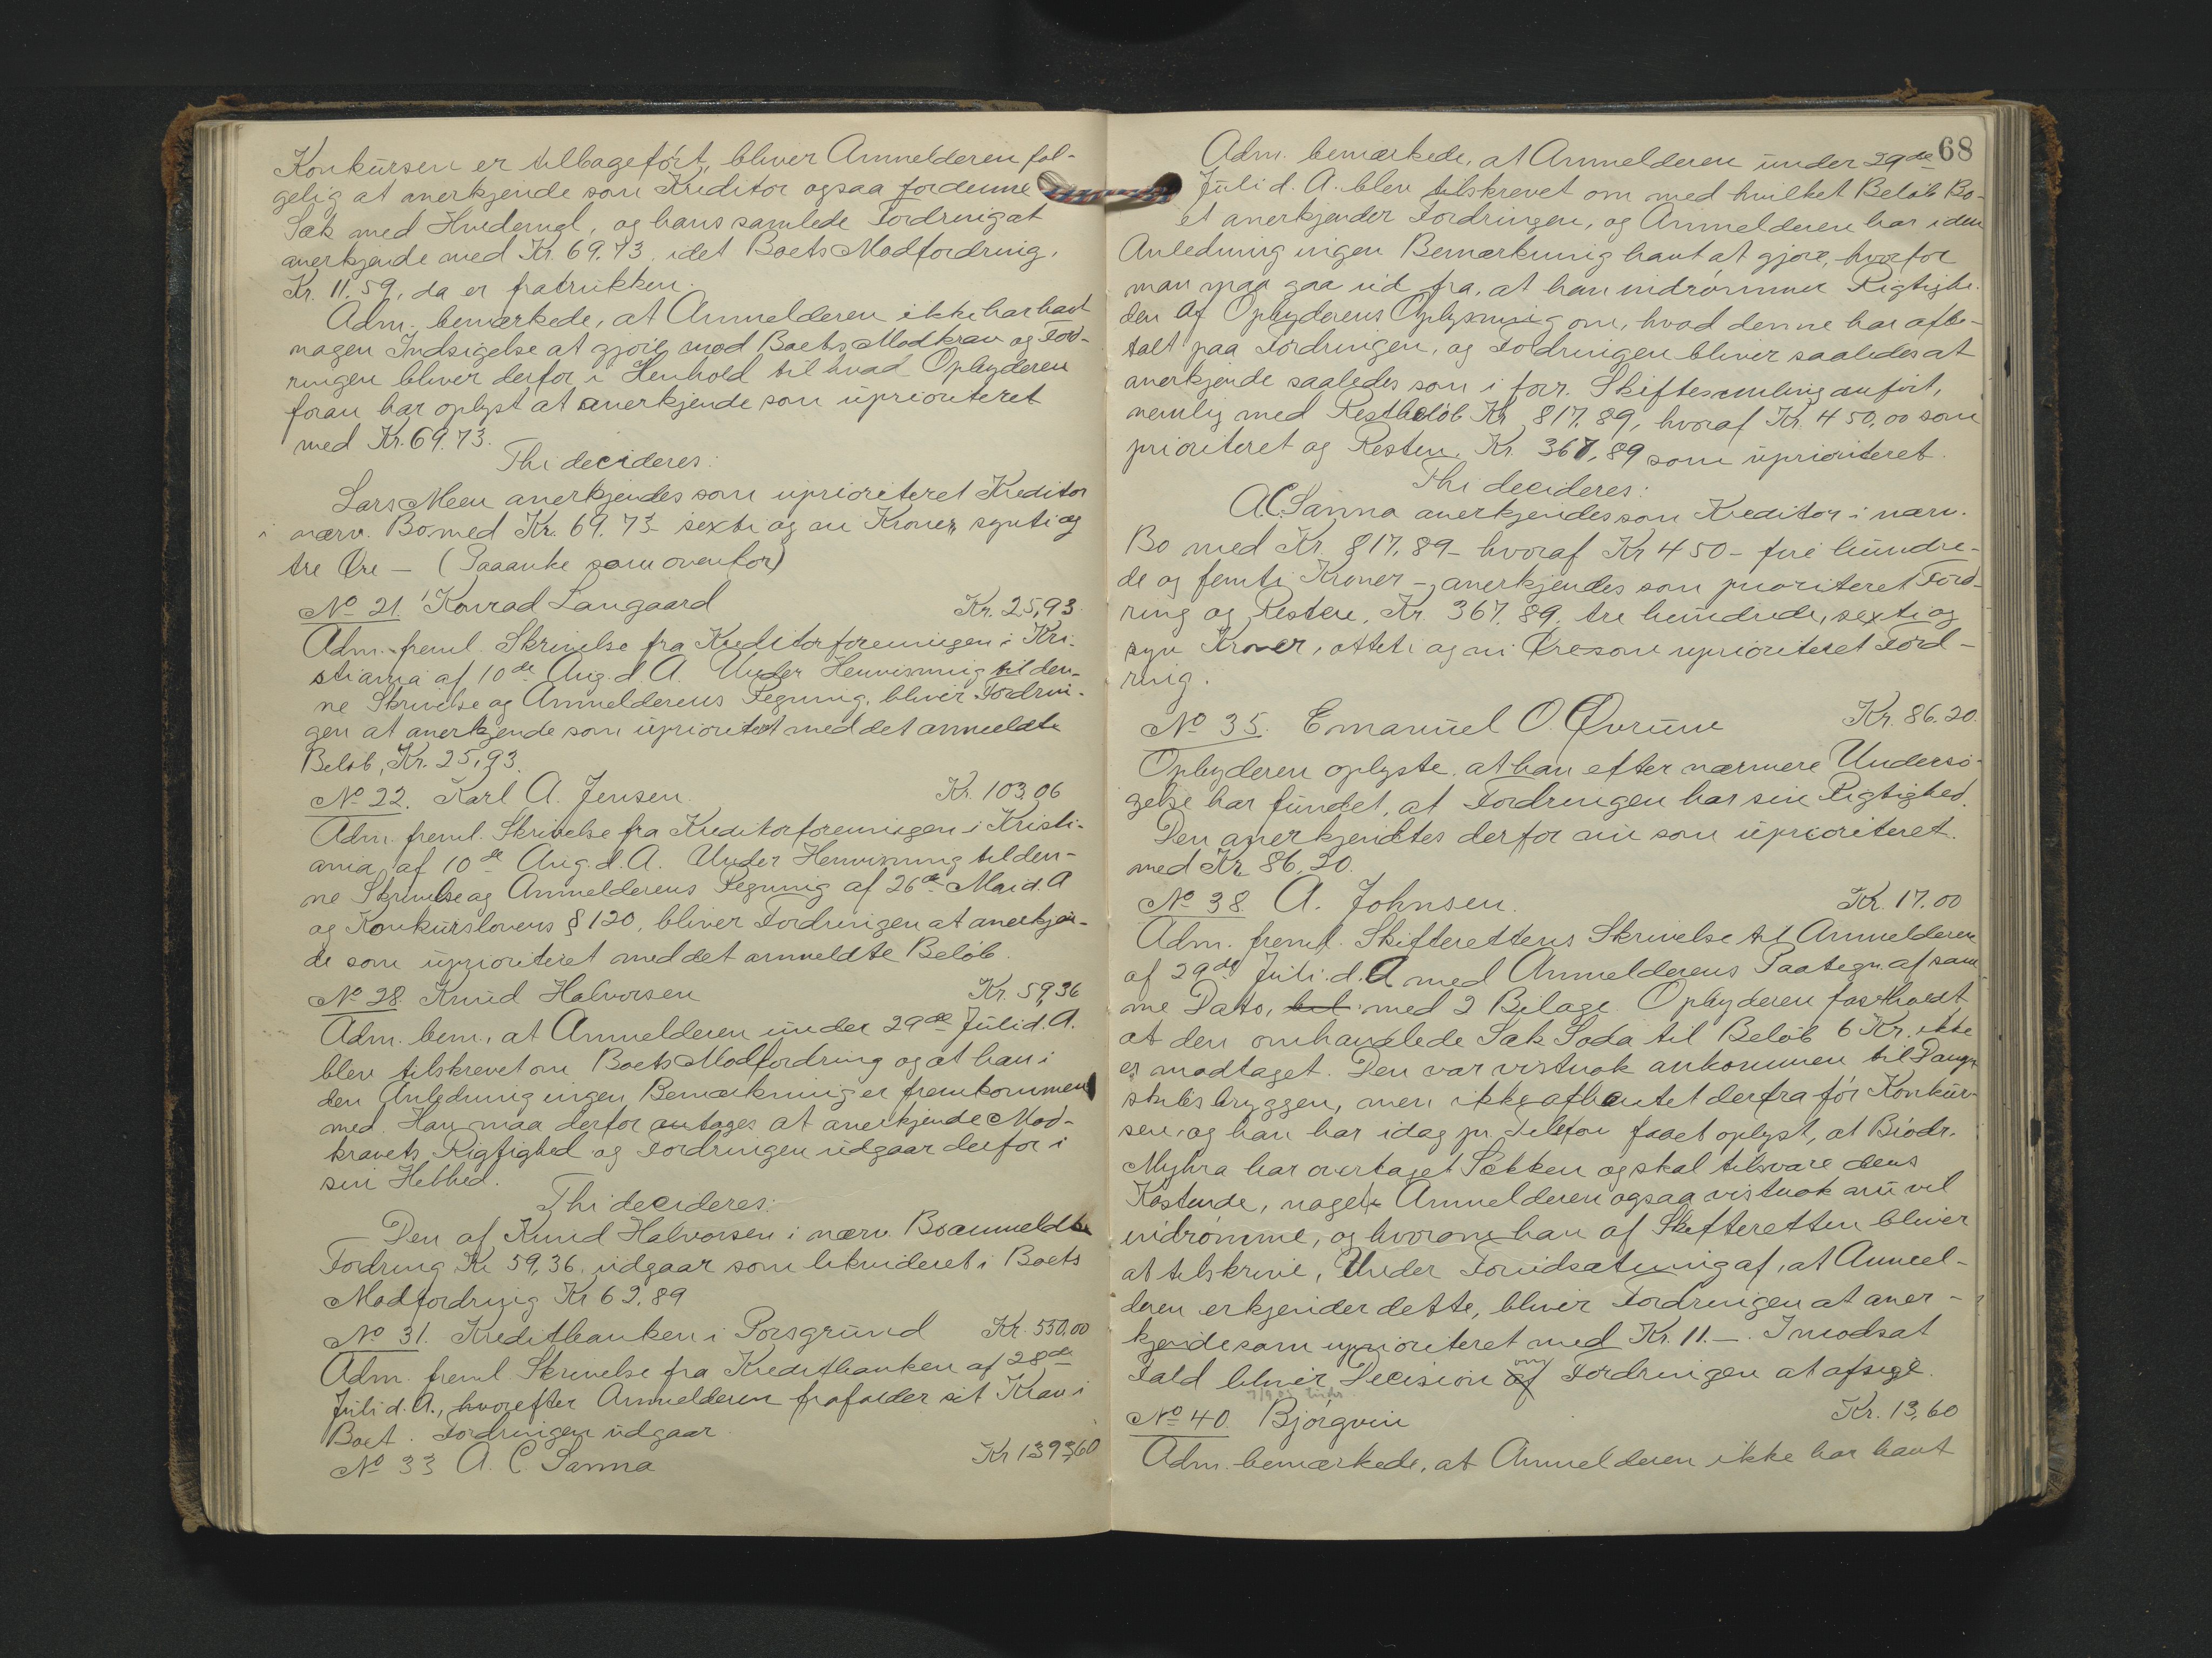 Konkursen er tilbageført, bliver Anmelderen føl-
gelig at anerkjende som Kreditor ogsaa for denne
Sæk med Hvedemel, og hans samlede Fordring at
anerkjende med Kr. 69.73, idet Boets Modfordring,
Kr. 11,59, da er fratrukken.
Adm. bemærkede, at Anmelderen ikke har havt
nogen Indsigelse at gjøre mod Boets Modkrav og Ford-
ringen bliver derfor i Henhold til hvad Opbyderen
foran har oplyst at anerkjende som uprioriteret
med Kr. 69.73.
Thi decideres:
Lars Meen anerkjendes som uprioriteret Kreditor
i nærv. Bo med Kr. 69.73 sexti og ni Kroner, sytti og
tre Øre – (Paaanke som ovenfor)
No 21. Konrad Langaard Kr. 25,93.
Adm. freml. Skrivelse fra Kreditorforeningen i Kri-
stiania af 10de Aug. d. A. Under Henvisning til den-
ne Skrivelse og Anmelderens Regning, bliver Fordrin-
gen at anerkjende som uprioriteret med det anmeldte
Beløb, Kr. 25,93.
No 22. Karl A. Jensen Kr. 103,06
Adm. freml. Skrivelse fra Kreditorforeningen i Kristi-
ania af 10de Aug. d. A. Under Henvisning til den-
ne Skrivelse og Anmelderens Regning af 26de Mai d. A
og Konkurslovens § 120, bliver Fordringen at anerkjen-
de som uprioriteret med det anmeldte Beløb.
No 28. Knud Halvorsen Kr. 59,36
Adm. bem., at Anmelderen under 29de Juli d. A.
blev tilskrevet om Boets Modfordring og at han i
den Anledning ingen Bemærkning er fremkommen
med. Han maa derfor antages at anerkjende Mod-
kravets Rigtighed og Fordringen udgaar derfor i
sin Helhed.
Thi decideres:
Den af Knud Halvorsen i nærv. Bo anmeldte
Fordring Kr 59,36, udgaar som likvideret i Boets
Modfordring Kr 62,89
No 31. Kreditbanken i Porsgrund Kr. 550,00
Adm. freml Skrivelse fra Kreditbanken af 28de
Juli d. A., hvorefter Anmelderen frafalder sit Krav i
Boet. Fordringen udgaar.
No 33 A. C Sanna Kr 1393,60
68
Adm. bemærkede, at Anmelderen under 29de
Juli d. A. blev tilskrevet om med hvilket Beløb Bo-
et anerkjender Fordringen, og Anmelderen har i den
Anledning ingen Bemærkning havt at gjøre, hvorfor
man maa gaa ud fra, at han indrømmer Rigtighe-
den af Opbyderens Oplysning om, hvad denne har afbe-
talt paa Fordringen, og Fordringen bliver saaledes at
anerkjende saaledes som i forr. Skiftesamling anført,
nemlig med Restbeløb Kr. 817,89, hvoraf Kr. 450,00 som
prioriteret og Resten, Kr. 367,89 som uprioriteret.
Thi decideres:
A.C. Sanna anerkjendes som Kreditor i nærv.
Bo med Kr. 817,89 – hvoraf Kr 450 – fire hundre-
de og femti Kroner – anerkjendes som prioriteret Ford-
ring og Resten, Kr. 367,89, tre hundrede, sexti og
syv Kroner, otteti og ni Øre som uprioriteret Ford-
ring.
No 35. Emanuel O. Øvrum Kr. 86.20.
Opbyderen oplyste, at han efter nærmere Undersø-
gelse har fundet, at Fordringen har sin Rigtighed.
Den anerkjendtes derfor nu som uprioriteret.
med Kr 86,20.
No 38 A. Johnsen. Kr. 17.00
Adm. freml. Skifterettens Skrivelse til Anmelderen
af 29de Juli d. A med Anmelderens Paategn. af sam-
me Dato, bil med 2 Bilage. Opbyderen fastholdt
at den omhandlede Sæk Soda til Beløb 6 Kr. ikke
er modtaget. Den var vistnok ankommen til Damp-
skibsbryggen, men ikke afhentet derfra før Konkur-
sen, og han har idag pr. Telefon faaet oplyst, at Brødr.
Myhra har overtaget Sækken og skal tilsvare dens
Kostende, noget Anmelderen ogsaa vistnok nu vil
indrømme, og hvorom han af Skifteretten bliver
at tilskrive. Under Forudsætning af, at Anmel-
deren erkjender dette, bliver Fordringen at aner-
kjende som uprioriteret med Kr. 11.–. I modsat
Fald bliver Decision om Fordringen at afsige.
No 40. Bjørgvin Kr. 13,60
Adm. bemærkede, at Anmelderen ikke har havt